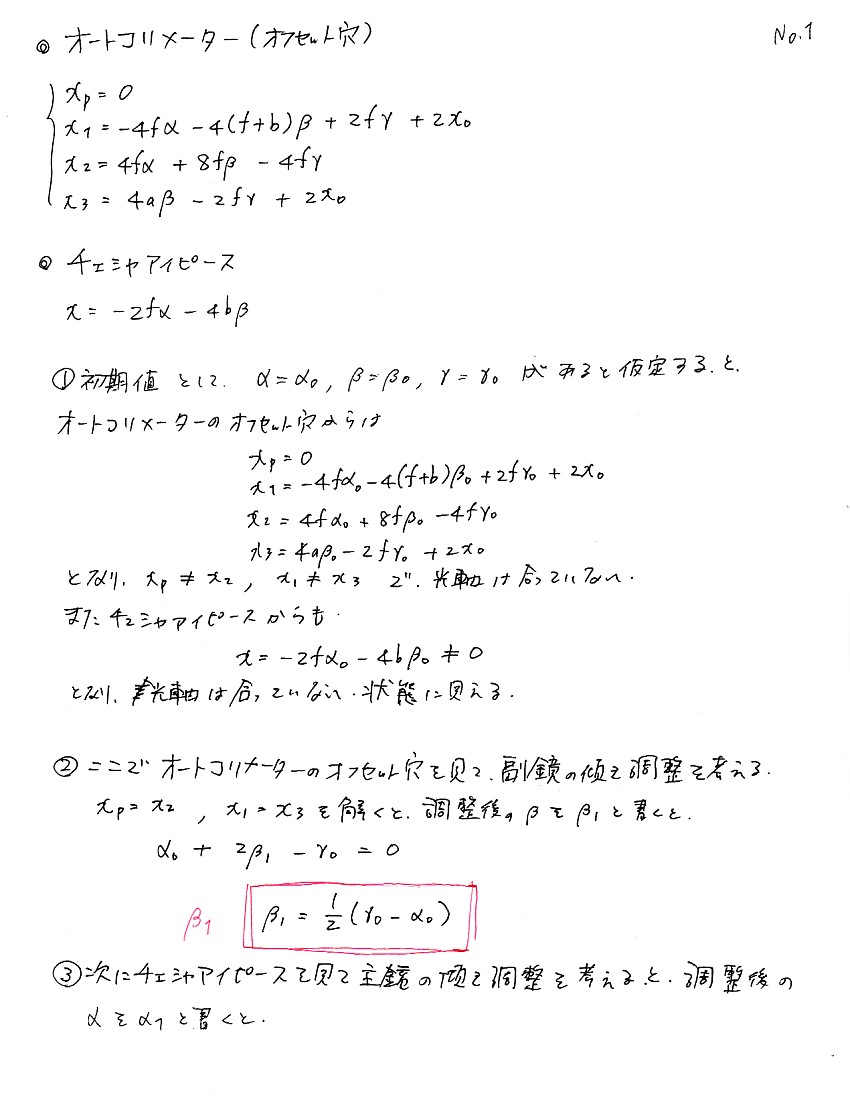 ◎ オートコリメーター(オフセット穴)
No.1
xp = 0
x1 = -4fα - 4(f+b)β + 2fγ + 2x0
x2 = 4fα + 8fβ - 4fγ
x3 = 4aβ - 2fγ + 2x0
◎ チェシャアイピース
x = -2fα - 4bβ
①初期値として、α=α0, β=β0, γ=γ0 があると仮定すると、
オートコリメーターのオフセット穴からは
xp = 0
x1 = -4fα0 - 4(f+b)β0 + 2fγ0 + 2x0
x2 = 4fα0 + 8fβ0 - 4fγ0
x3 = 4aβ0 - 2fγ0 + 2x0
となり、xp ≠ x2, x1 ≠ x3 で、光軸は合っていない。
またチェシャアイピースからも、
x = -2fα0 - 4bβ0 ≠ 0
となり、光軸は合っていない状態に見える。
② ここでオートコリメーターのオフセット穴を見て、副鏡の傾き調整を考える。
xp = x2, x1 = x3 を解くと、調整後のβをβ1と書くと、
α0 + 2β1 - γ0 = 0
β1 β1 = 1/2 (γ0 - α0)
③次にチェシャアイピースを見て主鏡の傾き調整を考えると、調整後の
αをα1と書くと、